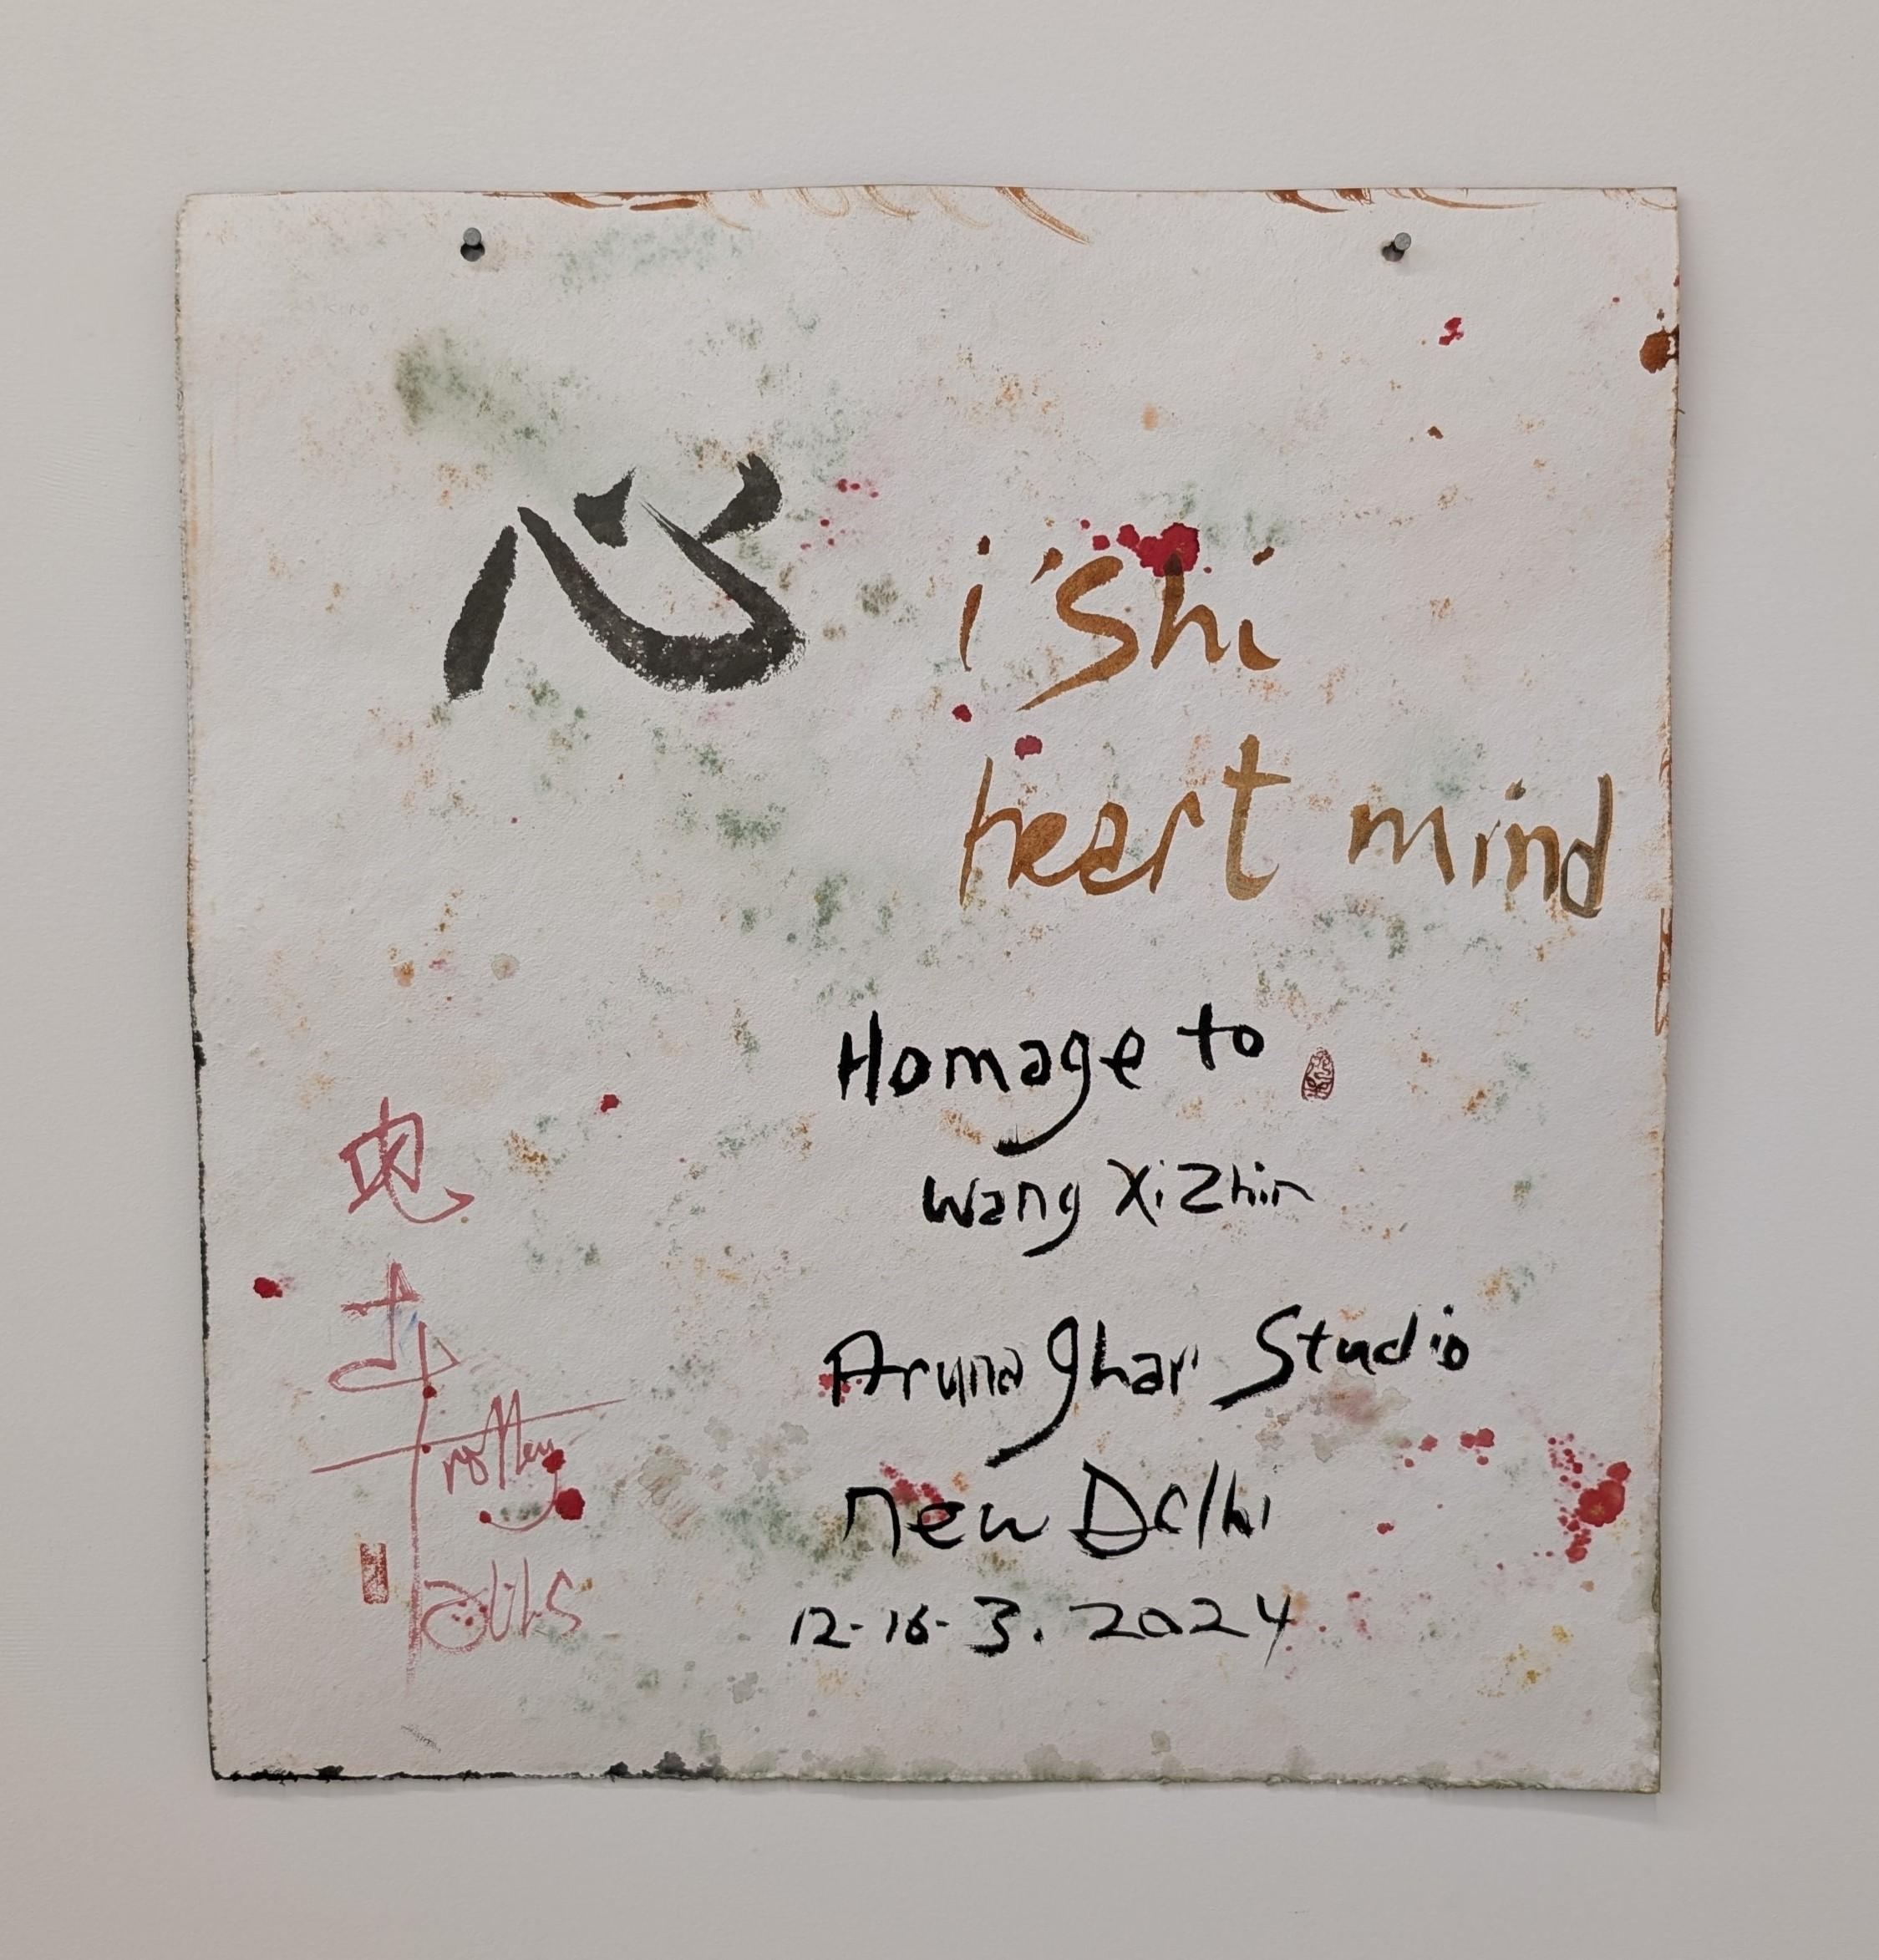 心 i'shi
heart mind
Homage to
Wang XiZhin
Arunaghar Studio
new Delhi
12-16-3. 2024